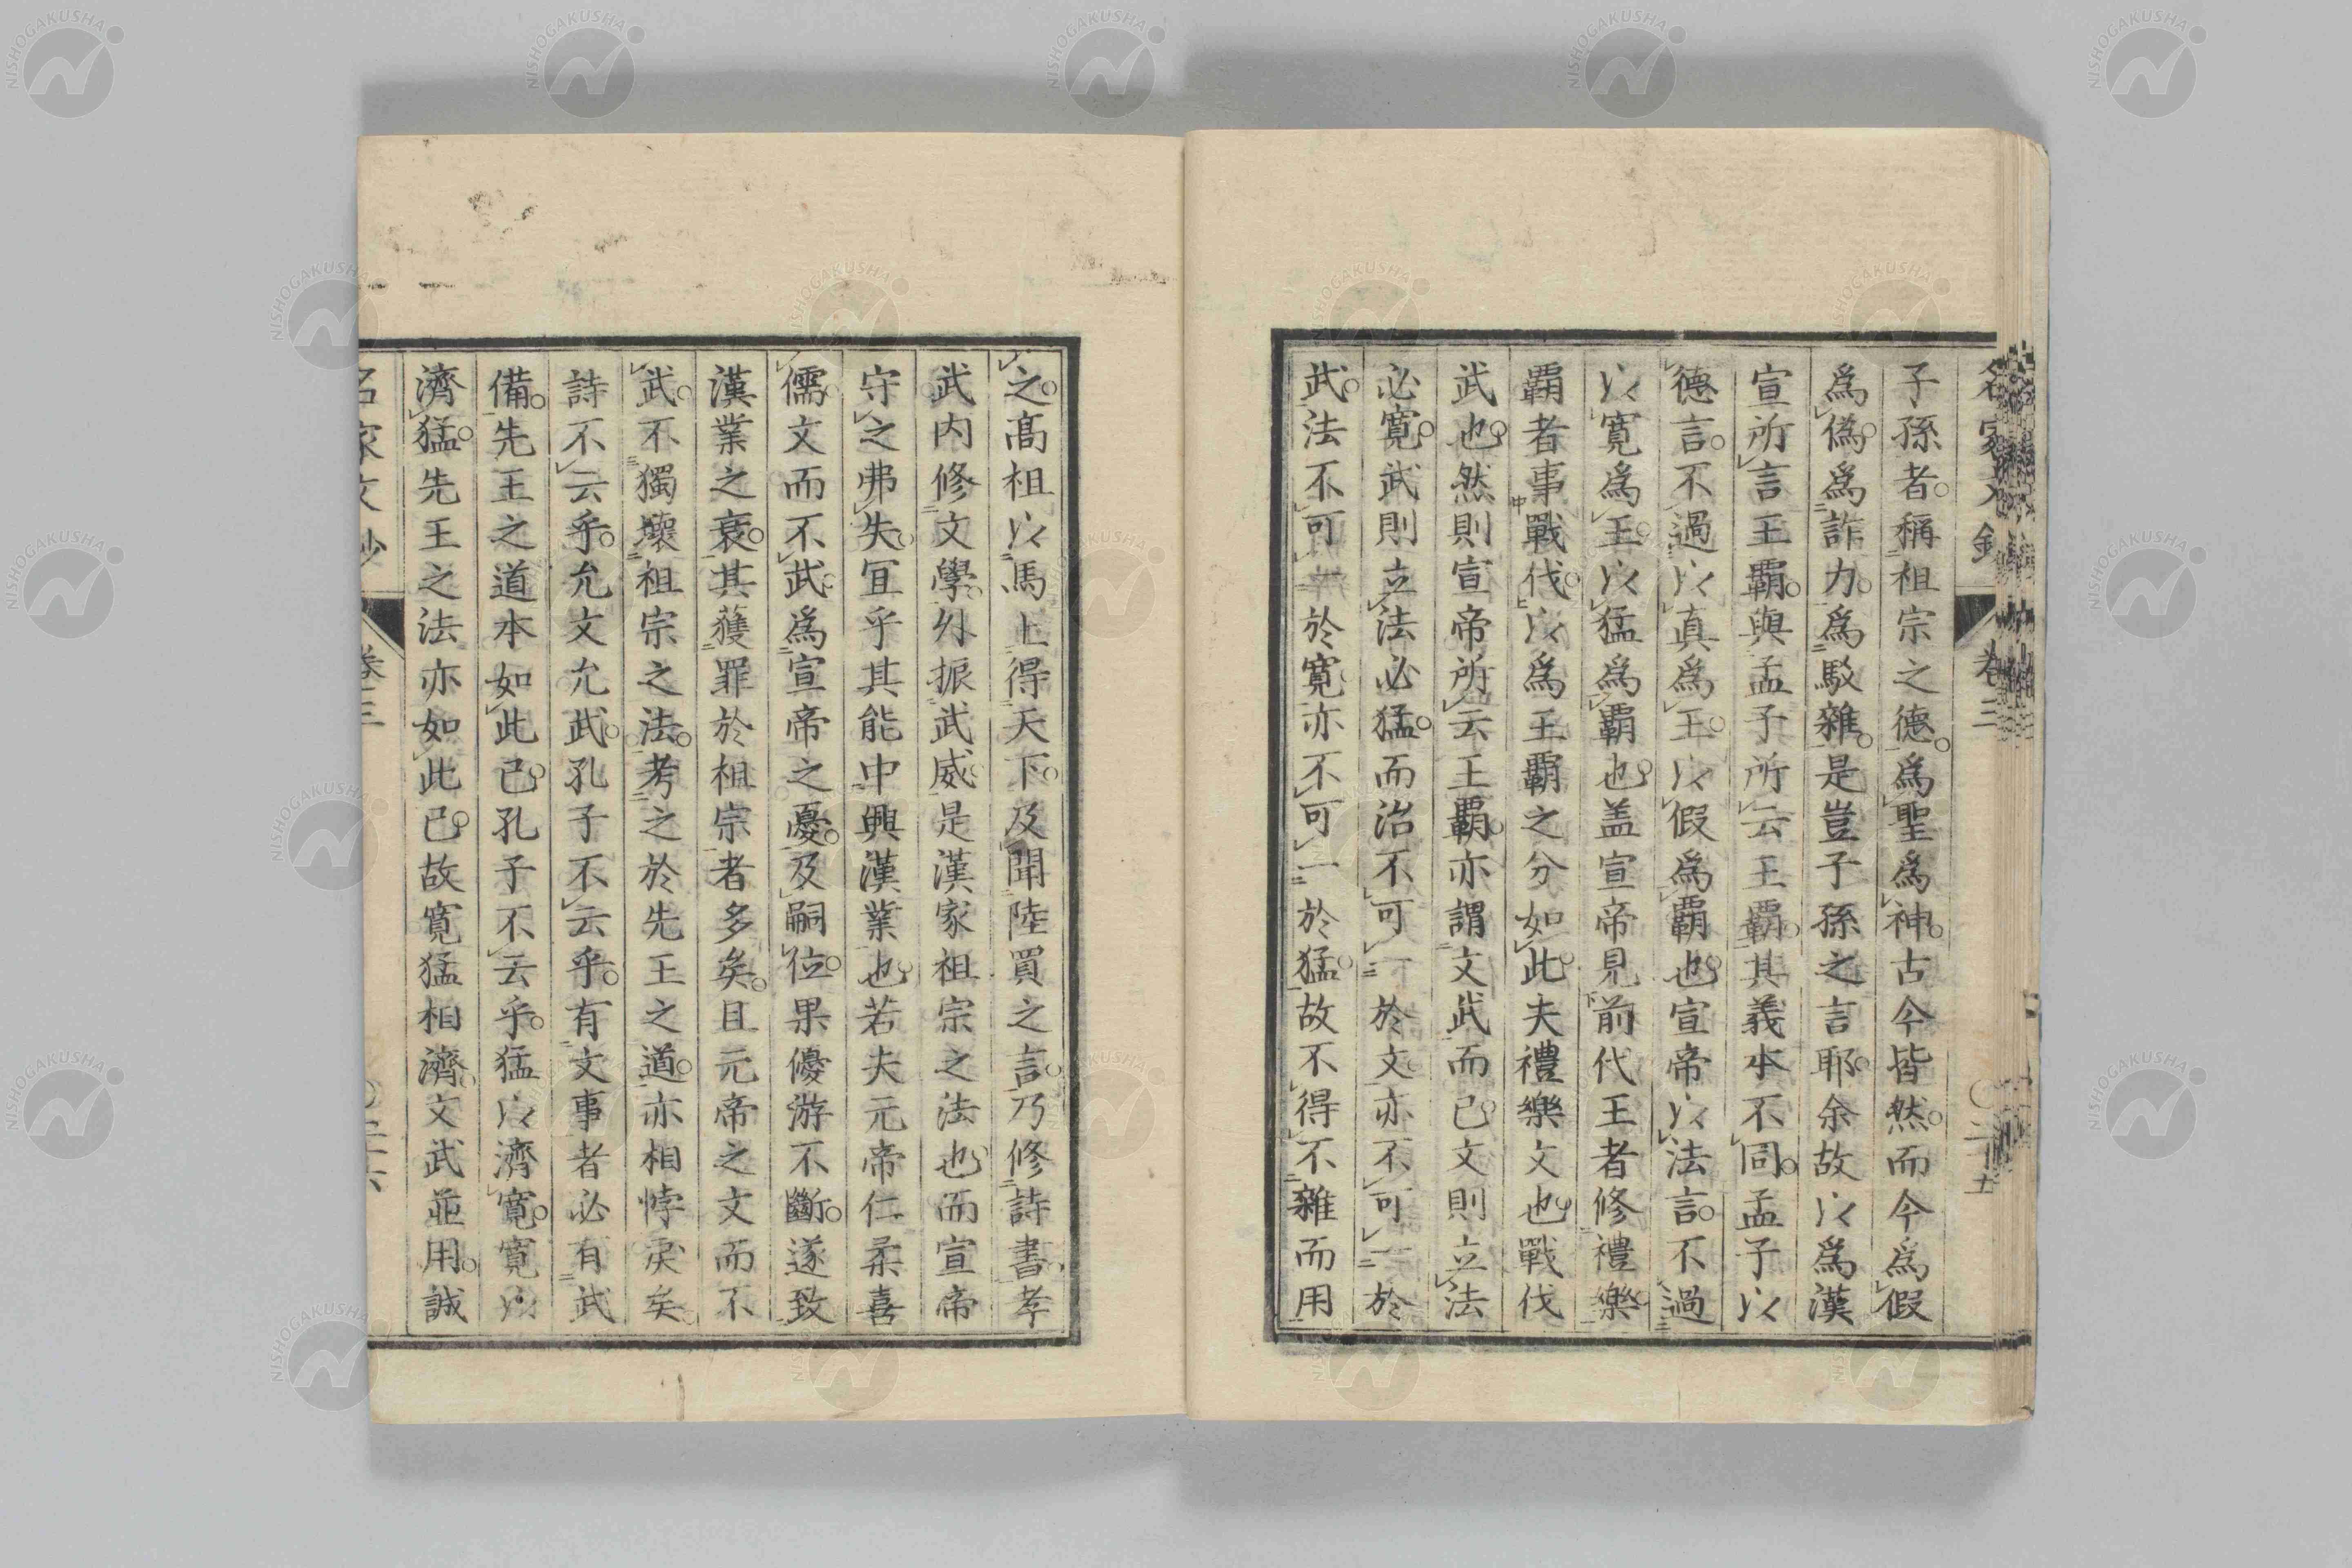 名家文鈔 卷三 〇二十五
子孫者稱祖宗之德爲聖爲神古今皆然而今爲假
爲僞爲詐力爲駁雜是豈子孫之言耶余故以爲漢
宣所言王霸與孟子所云王霸其義本不同孟子以
德言不過以真爲王以假爲霸也宣帝以法言不過
以寬爲王以猛爲霸也盖宣帝見前代王者修禮樂
霸者事戰伐以爲王霸之分如此夫禮樂文也戰伐
武也然則宣帝所云王霸亦謂文武而已文則立法
必寬武則立法必猛而治不可一於文亦不可一於
武法不可一於寬亦不可一於猛故不得不雜而用
之高祖以馬上得天下及聞陸買之言乃修詩書孝
武内修文學外振武威是漢家祖宗之法也而宣帝
守之弗失宜乎其能中興漢業也若夫元帝仁柔喜
儒文而不武爲宣帝之憂及嗣位果優游不斷遂致
漢業之衰其獲罪於祖宗者多矣且元帝之文而不
武不獨壞祖宗之法考之於先王之道亦相悖戾矣
詩不云乎允文允武孔子不云乎有文事者必有武
備先王之道本如此已孔子不云乎猛以濟寬寬以
濟猛先王之法亦如此已故寬猛相濟文武並用誠
名家文鈔 卷三 〇二十六
NISHOGAKUSHA